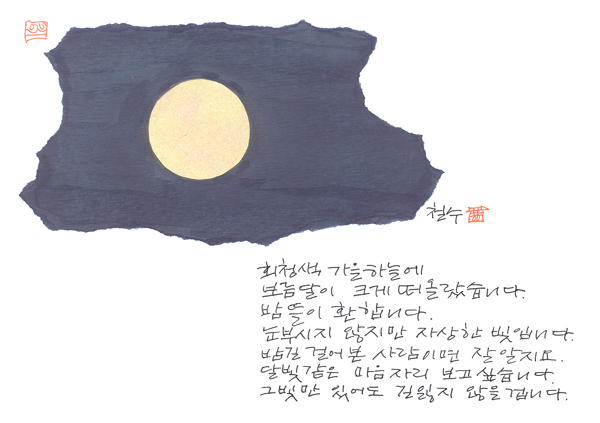 철수
회청색 가을하늘에
보름달이 크게 떠올랐습니다.
밤뜰이 환합니다.
눈부시지 않지만 자상한 빛입니다.
밤길 걸어본 사람이면 잘 알지요.
달빛같은 마음자리 보고싶습니다.
그빛만 있어도 길잃지 않을겁니다.